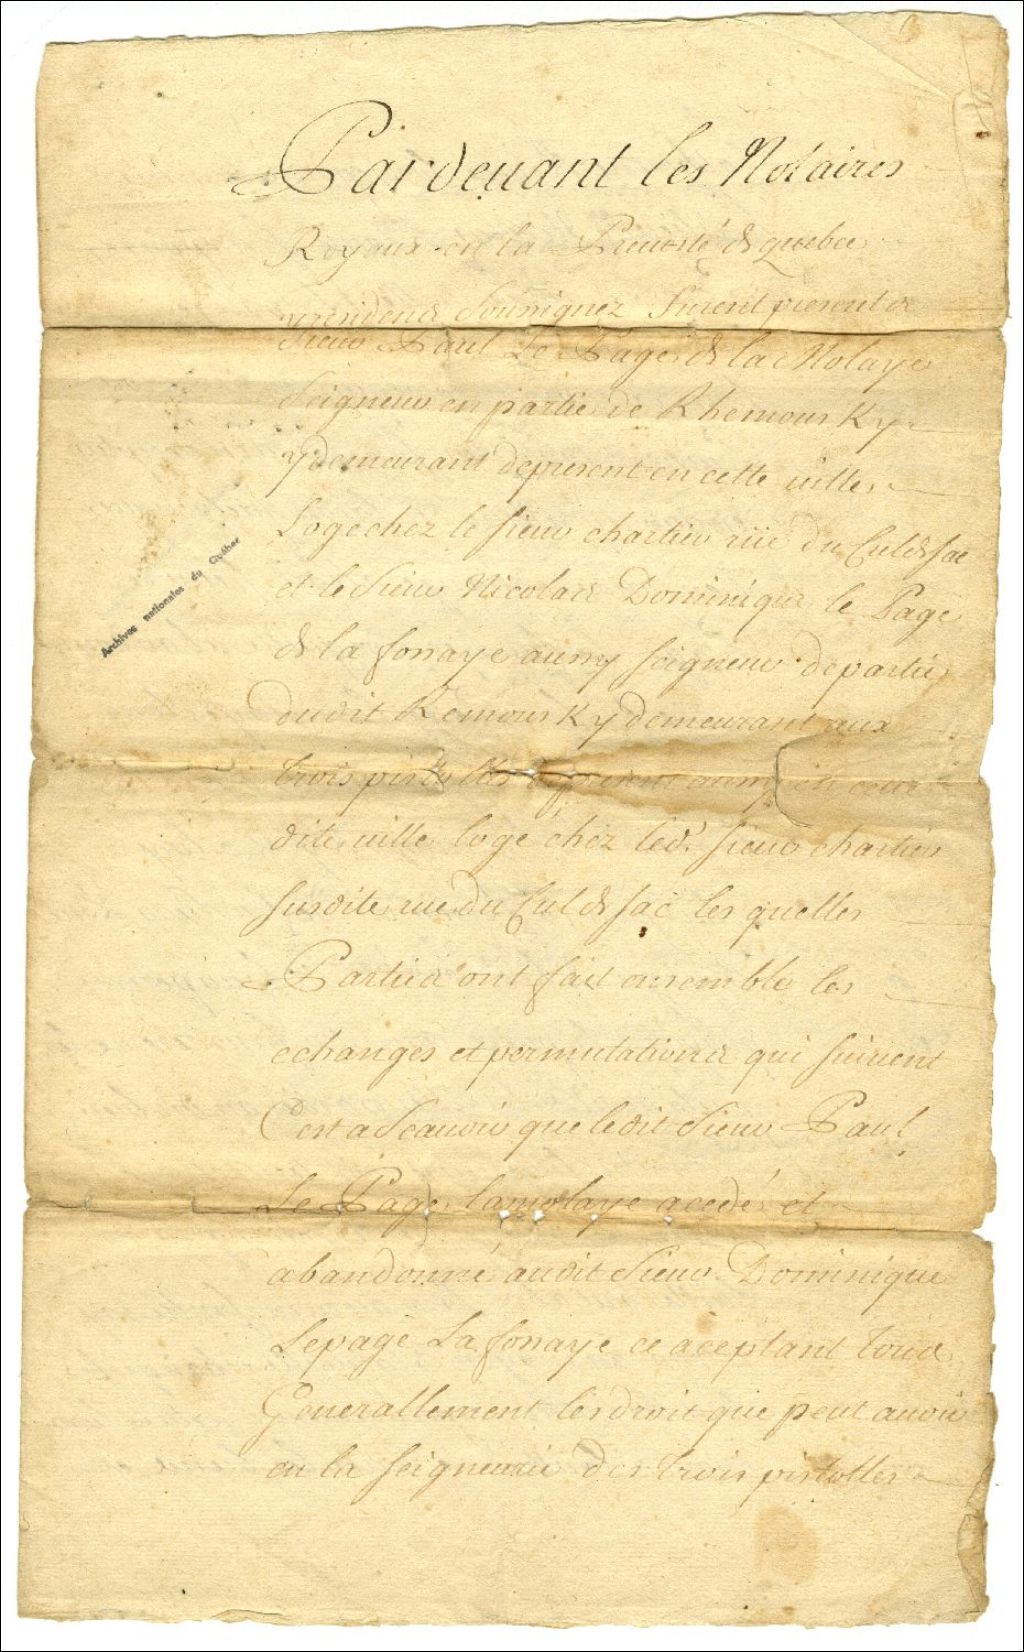 Pardeuant les Notaires
Royaux en la Preuosté de quebec
y residens Soussignez Furent presents
Sieur Paul Le Page de la Molaye
Seigneur en partie de Rhemousky
y demeurant depresent en cette uille
Logé chez le sieur chartier rüe du Culdesac
et le Sieur Nicolas Dominique le Page
de la fossaye aussy seigneur de partie
dudit Remousky demeurant aux
trois pistolles depresent aussy en cette
dite uille logé chez led. sieur chartier
susdite rue du Cul de sac les quelles
Parties ont fait ensemble les
echanges et permutations qui suiuent
C'est a Scauoir que ledit Sieur Paul
Le Page lamolaye a cedé et
abandonné audit Sieur Dominique
Lepage La fossaye ce aceptant tous
Generallement les droit que peut auoir
en la seigneurie des trois pistolles
Archives nationales du Québec